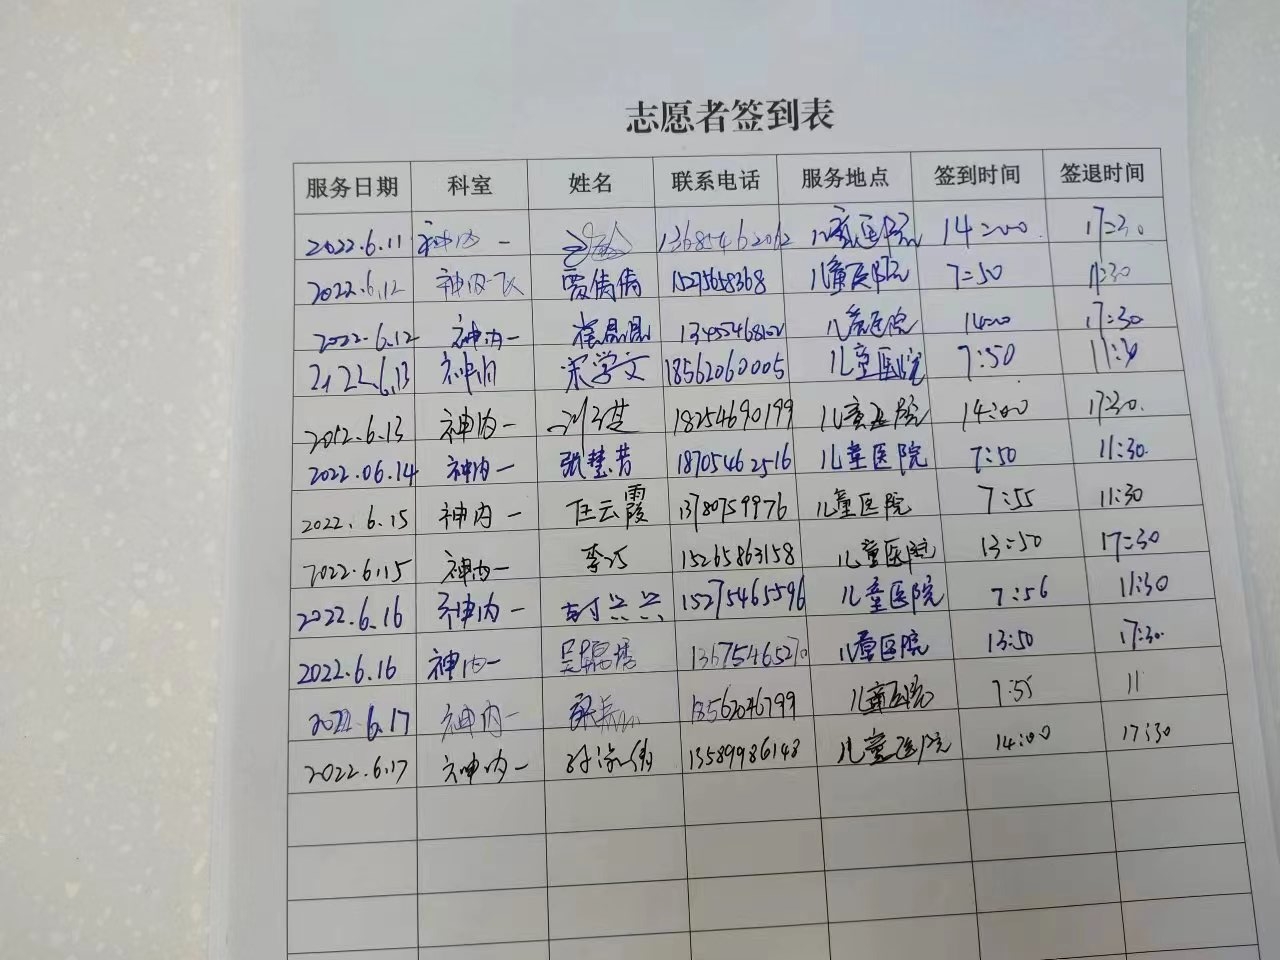 志愿者签到表
服务日期 科室 姓名 联系电话 服务地点 签到时间 签退时间
2022.6.11 神内一 13685462062 儿童医院 14:00 17:30
2022.6.12 神内一 贾倩倩 15275658368 儿童医院 7:50 11:30
2022.6.12 神内一 崔晶晶 儿童医院 14:00 17:30
2022.6.13 神内 宋学文 18562060005 儿童医院 7:50 11:30
2022.6.13 神内一 18254690199 儿童医院 14:00 17:30.
2022.06.14 神内一 张慧芳 18705462516 儿童医院 7:50 11:30.
2022.6.15 神内一 任云霞 13780759976 儿童医院 7:55 11:30
2022.6.15 神内一 李巧 15265863158 儿童医院 13:50 17:30
2022.6.16 神内一 15275465596 儿童医院 7:56 11:30
2022.6.16 神内一 儿童医院 13:50 17:30.
2022.6.17 神内一 18562046799 儿童医院 7:55 11
2022.6.17 神内一 13589986148 儿童医院 14:00 17:30